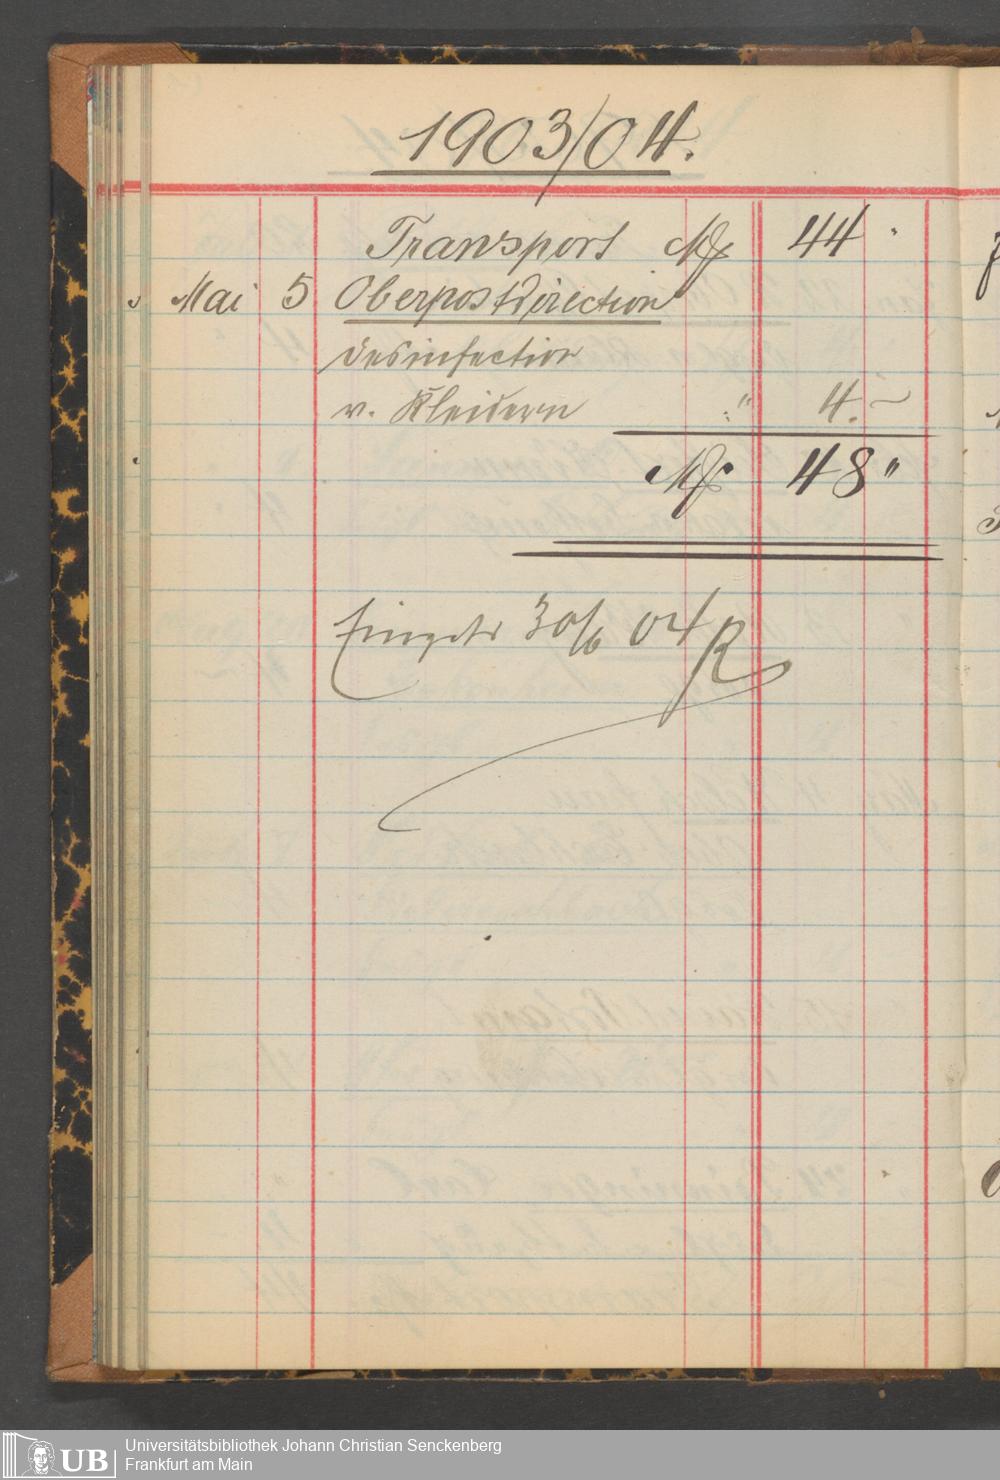 1903/04.
Transport M 44 "
Mai 5 Oberpostdirection
Desinfection
v. Kleidern " 4. –
M. 48 "
30/6 04 R
UB
Universitätsbibliothek Johann Christian Senckenberg
Frankfurt am Main